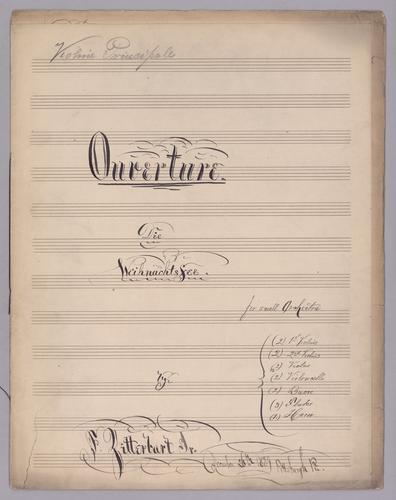 Violino Principale
Ouverture.
Die
Weihnachtsfee.
for small Orchestra
(2) 1st Violin
(2) 2nd Violin
Violas
(2) Violoncello
Basso
(3) Flutes
(1) Horn
by
F. Zitterbart Jr.
Pittsburgh Pa.